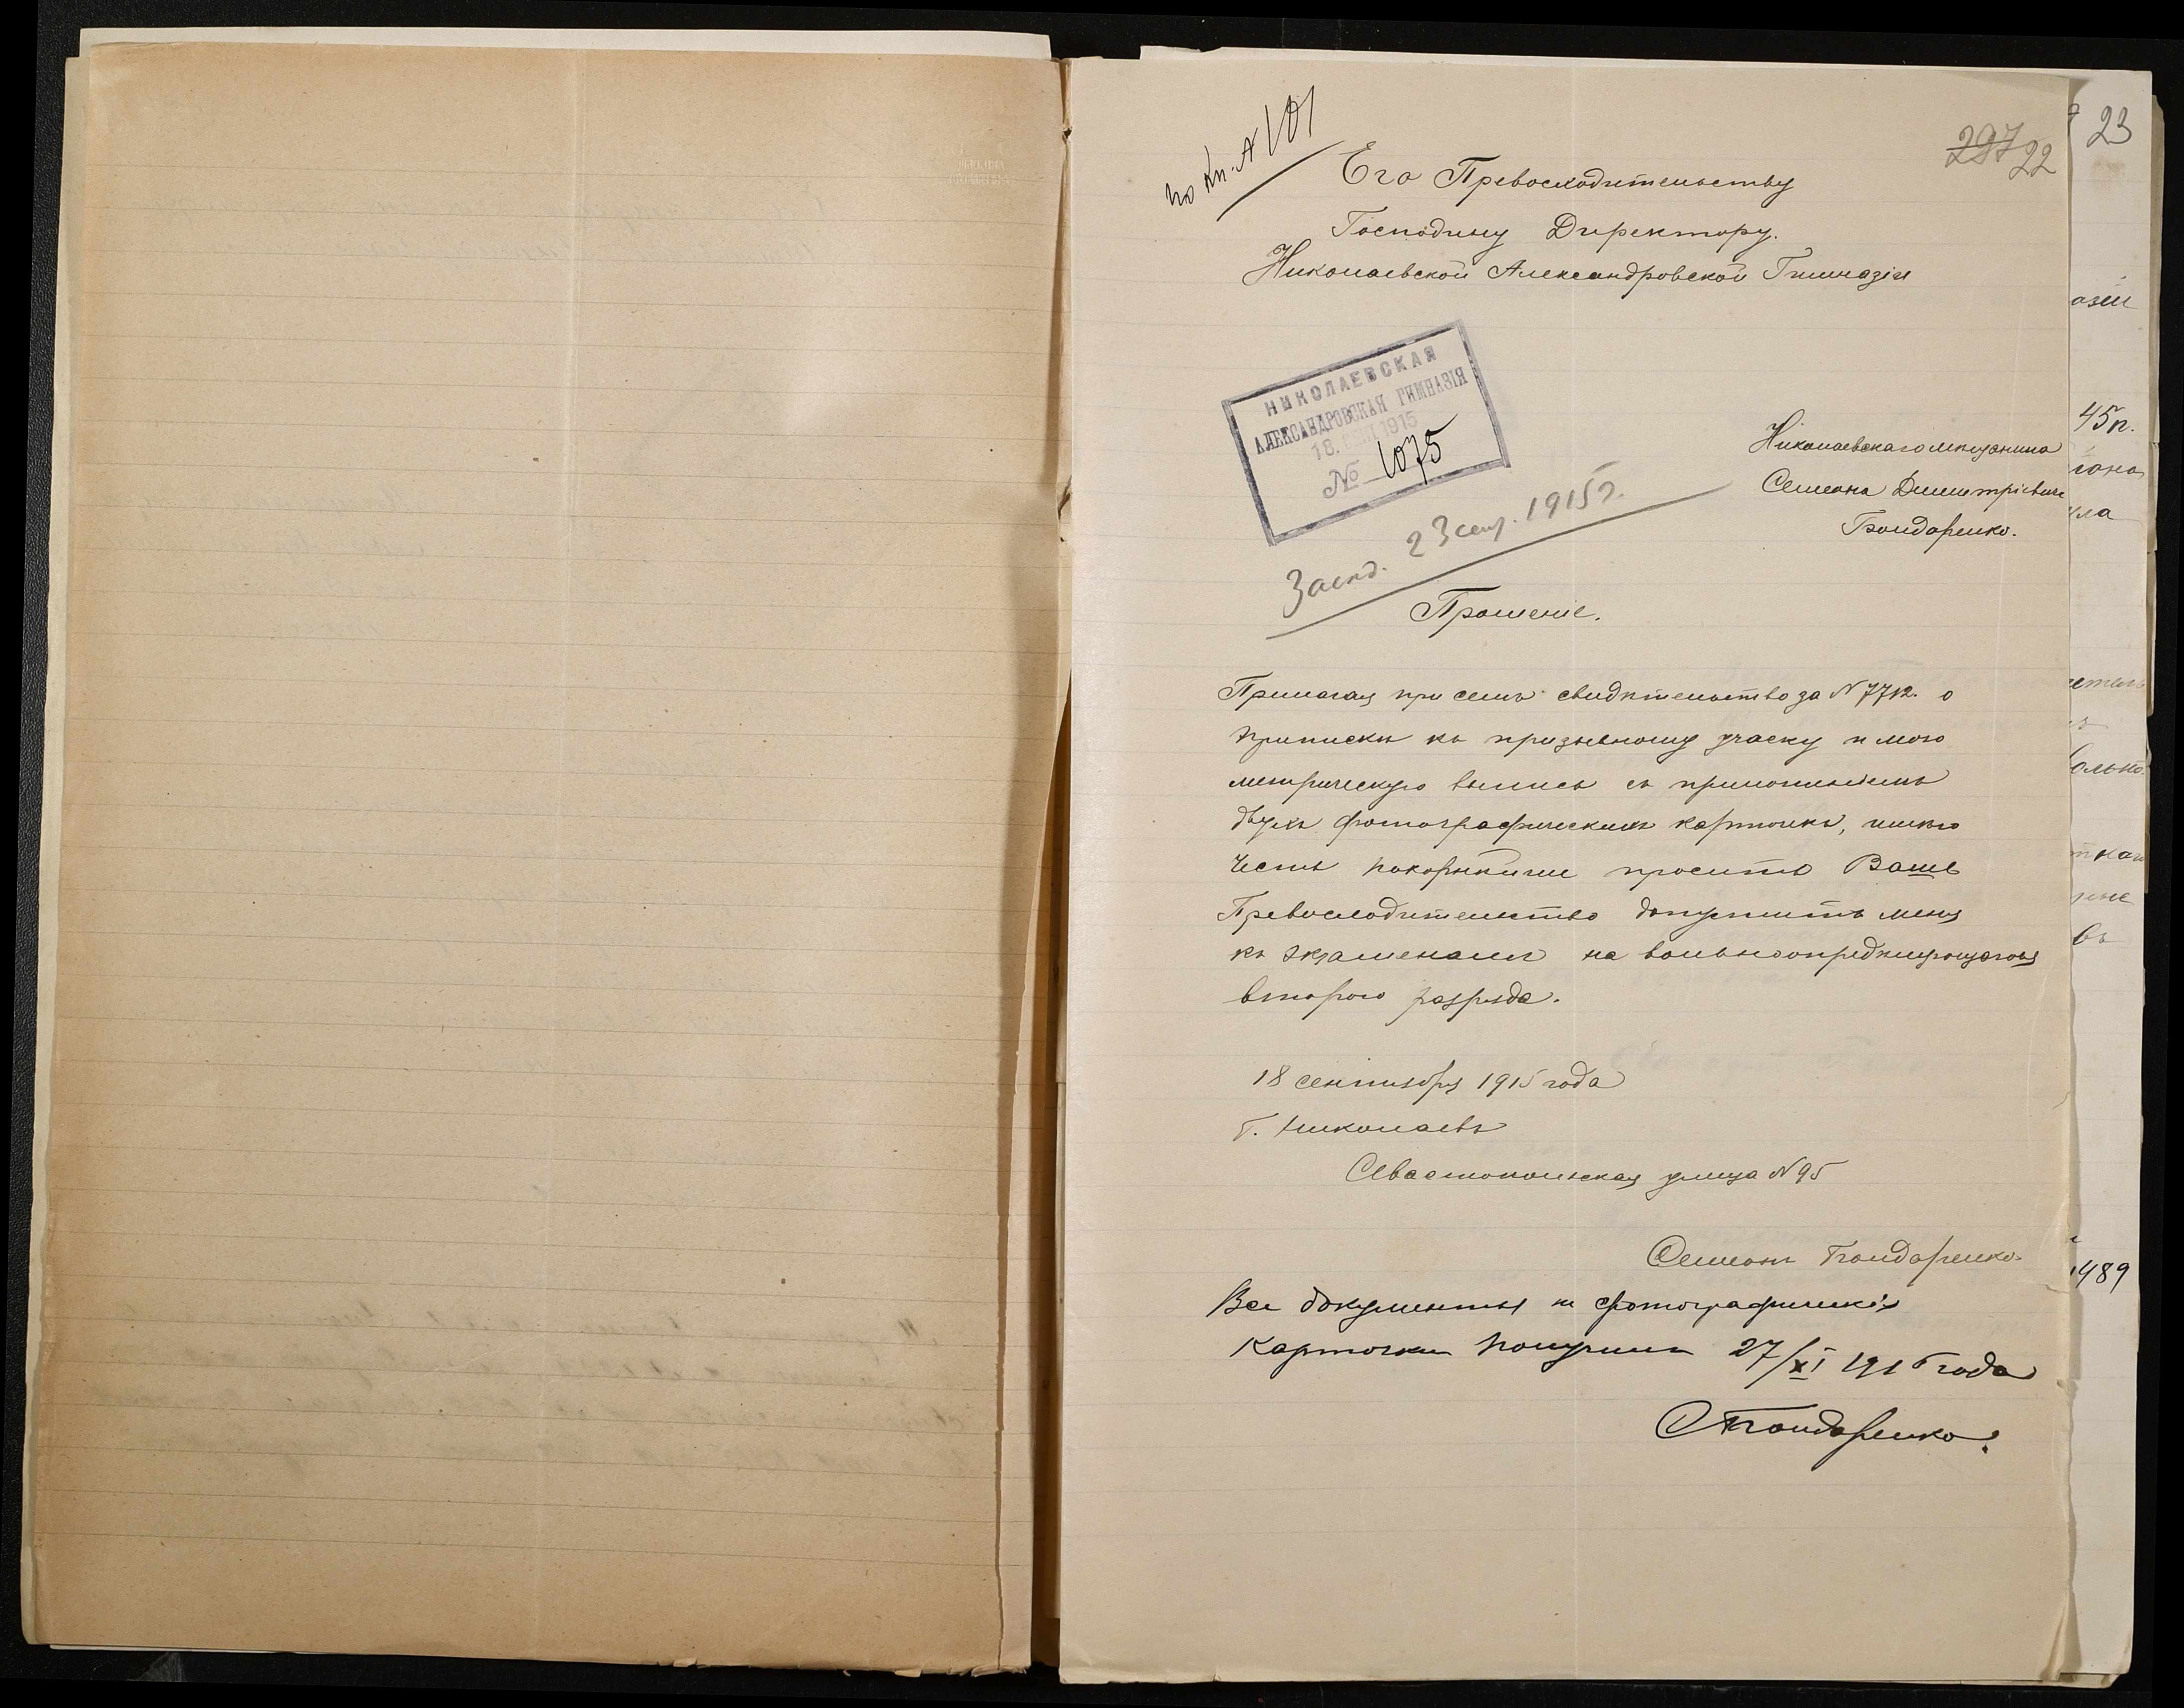 по кн. А 101
297 22
Его Превосходительству
Господину Директору.
Николаевской Александровской Гимназіи
НИКОЛАЕВСКАЯ
АЛЕКСАНДРОВСКАЯ ГИМНАЗІЯ
18. СЕН 1915
№ 1075
Николаевскаго мѣщанина
Семена Димитріевича
Бондаренко.
Засѣд. 23 сент. 1915 г.
Прошеніе.
Прилагая при семъ свидѣтельство за N 7712. о
приписки къ призывному учаску и мою
метрическую выпись съ приложеніемъ
двухъ фотографическихъ карточекъ, имѣю
честь покорнѣйше просить Ваше
Превосходительство допустить меня
къ экзаменамъ на вольноопредѣляющагося
второго разряда.
18 сентября 1915 года
Г. Николаевъ
Севастопольская улица N 95
Семенъ Бондаренко.
Все документы и фотографическія
карточки получилъ 27/XI 1915 года
СБондаренко.
23
азіи
45 к.
ольно
489